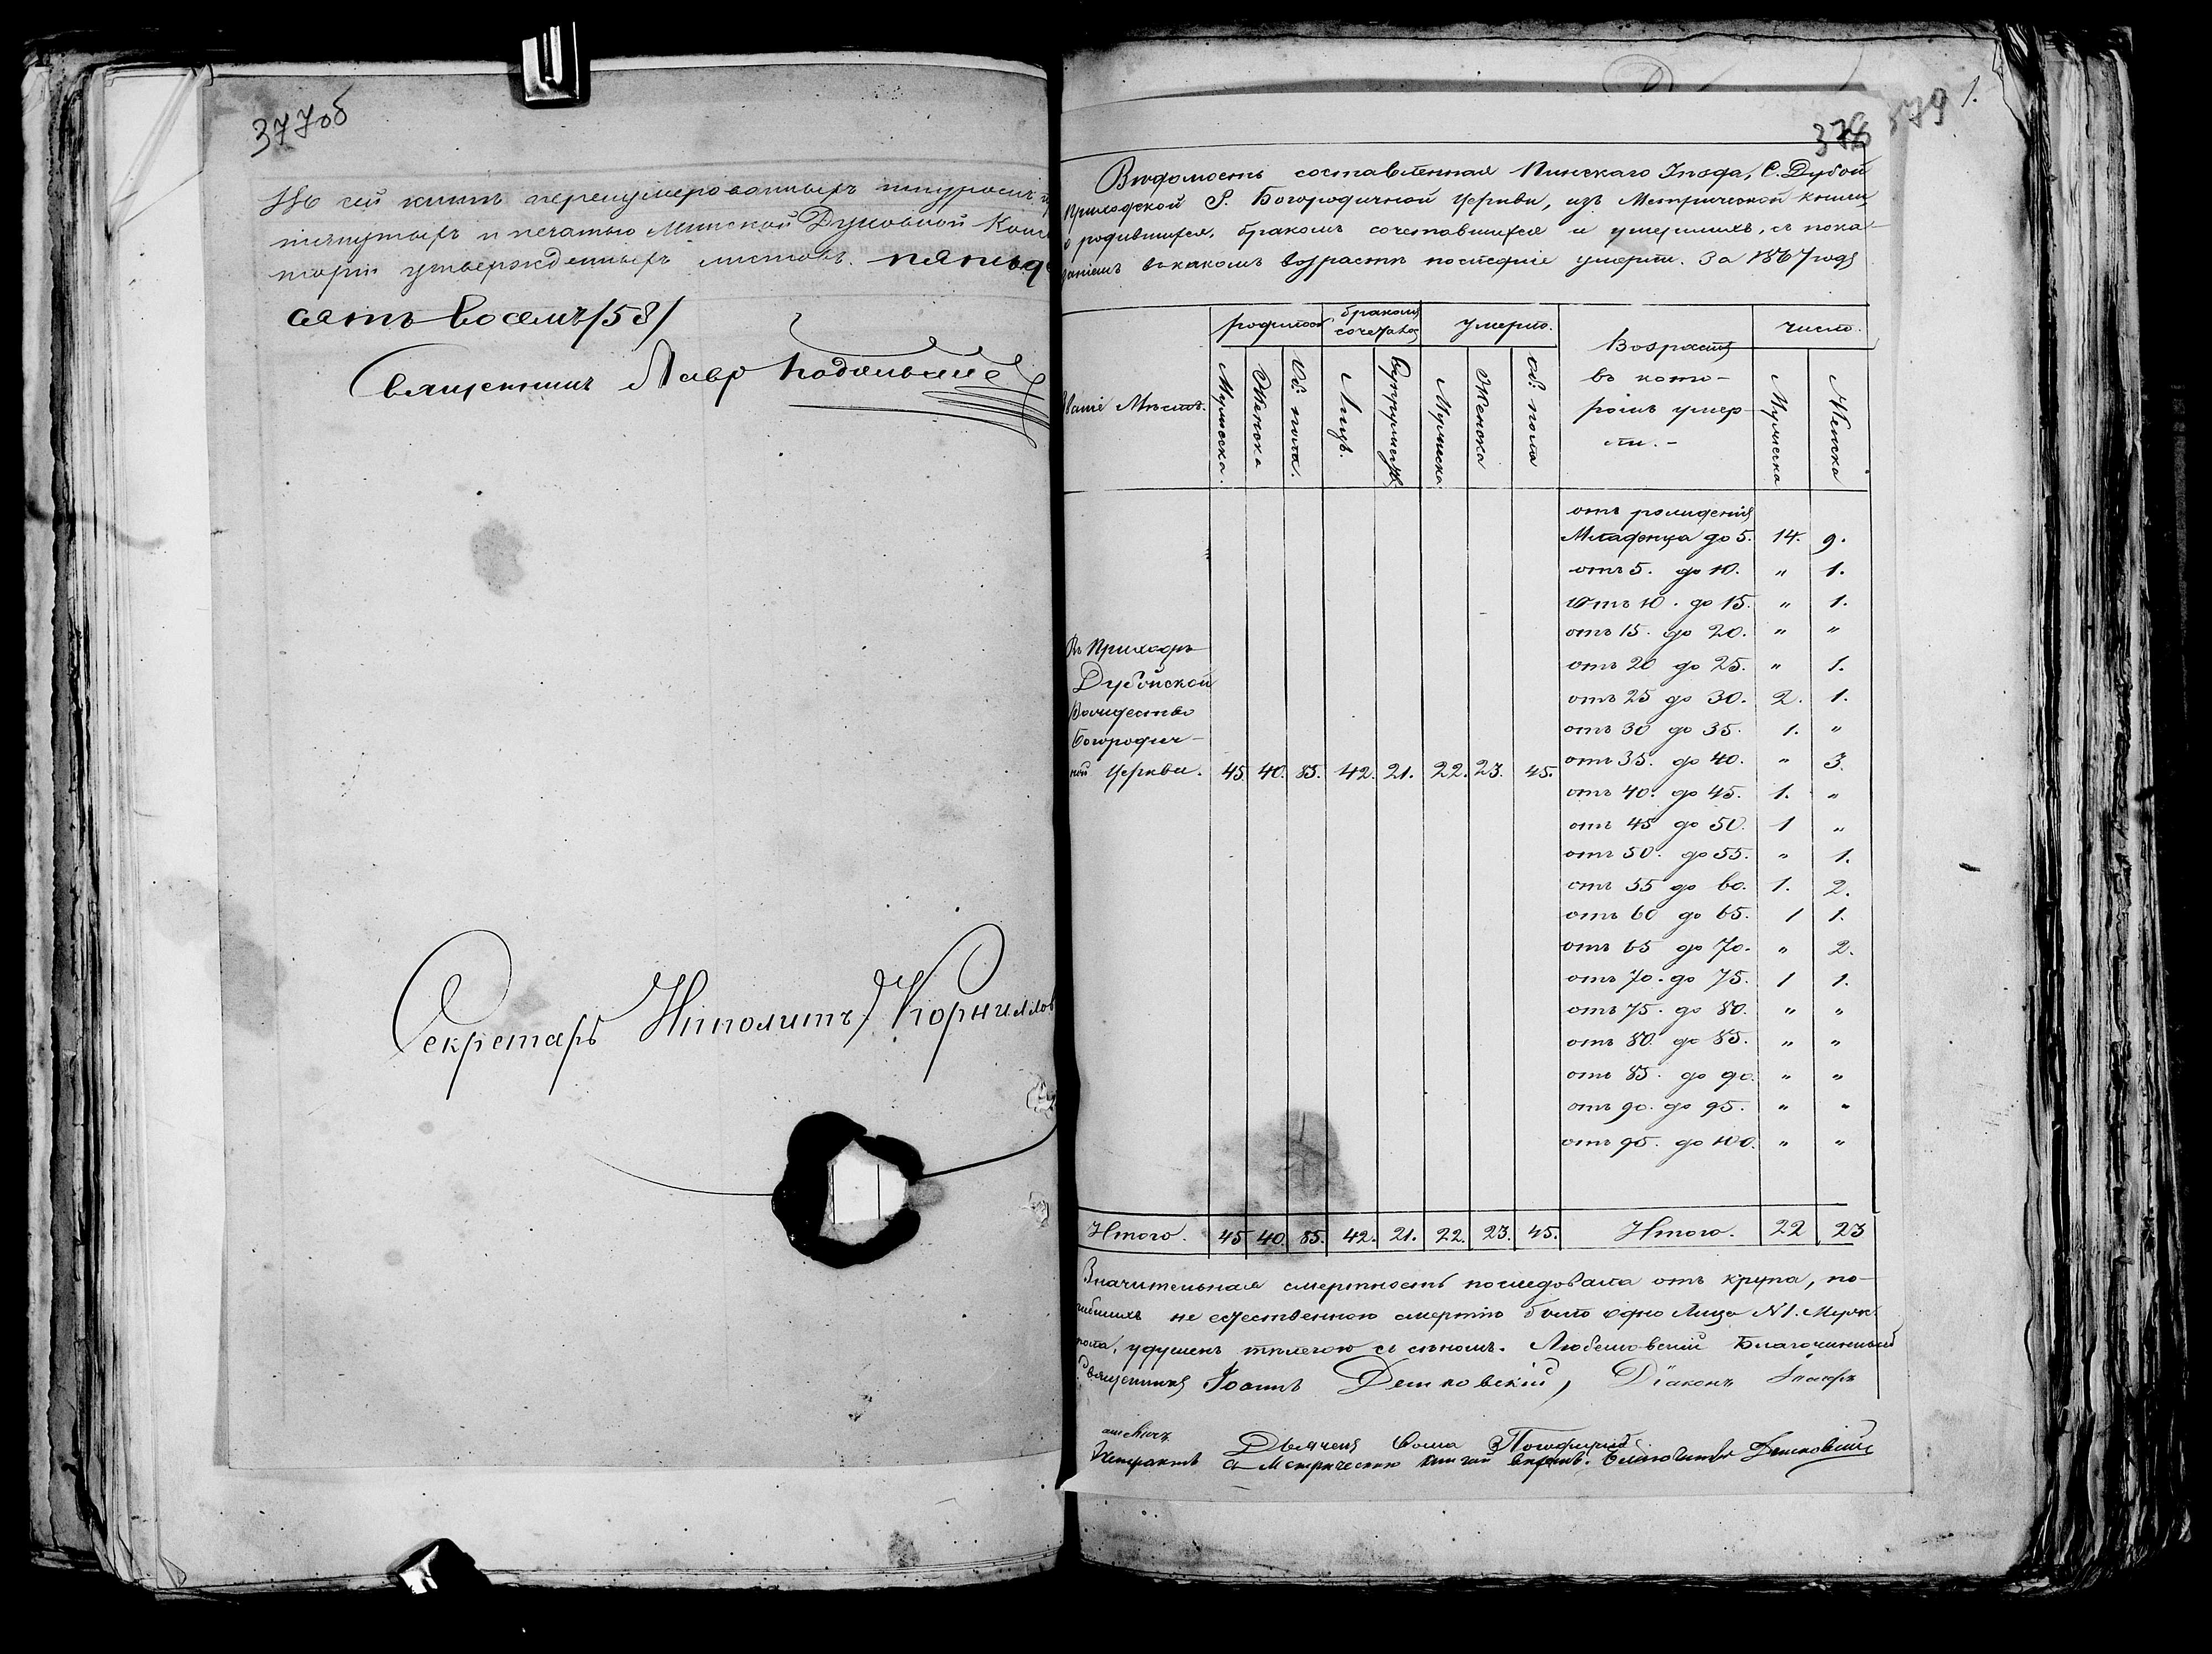 377об
Въ сей книгѣ перенумерованныхъ шнуромъ
тянутыхъ и печатью Минской Духовной Конси
торіи утвержденныхъ листовъ. пятьде
сятъ восемъ /58/
Священникъ Лавръ
Секретарь Иполитъ Корнилов
378
379
1.
Вѣдомость составленная Пинскаго Уѣзда, С. Дубой
Приходской Р. Богородичной Церкви, изъ Метрической книги
о родившихся, бракомъ сочетавшихся и умершихъ, съ пока-
заніемъ въ какомъ возрастѣ послѣдніе умерли. За 1867 годъ
званіе Мѣстъ.
родилось
бракомъ сочеталось
умерло.
Возрастъ въ кото-
ромъ умер-
ли. -
число.
Мужеска.
Женска
Об: пола.
Лицъ.
Супружеств.
Мужеска
Женска
Об: пола
Мужеска
Женска
отъ рожденія
Младенца до 5. 14. 9.
отъ 5. до 10. " 1.
отъ 10. до 15. " 1.
отъ 15. до 20. " "
отъ 20 до 25. " 1.
отъ 25 до 30. 2. 1.
отъ 30 до 35. 1. "
отъ 35. до 40. " 3.
отъ 40. до 45. 1. "
отъ 45 до 50. 1 "
отъ 50. до 55. " 1.
отъ 55 до 60. 1. 2.
отъ 60 до 65. 1 1.
отъ 65 до 70. " 2.
отъ 70. до 75. 1 1.
отъ 75. до 80. " "
отъ 80. до 85. " "
отъ 85. до 90. " "
отъ 90. до 95. " "
отъ 95. до 100. " "
Въ Приходѣ
Дубойской
Рождество
Богородич-
ной Церкви. 45. 40. 85. 42. 21. 22. 23. 45.
Итого. 45 40. 85. 42. 21. 22. 23. 45. Итого. 22 23
Значительная смертность послѣдовала отъ крупа, по-
гибшихъ не естественною смертію было одно Лицо N 1. Муж:
пола, удушенъ телегою съ сѣномъ. Любешовскій Благочинный
Священникъ Іоаннъ Дешковскій, Діаконъ
Дьячекъ Ѳома
Экстрактъ съ Метрическою книгою вѣренъ. Благочинный Дешковскій